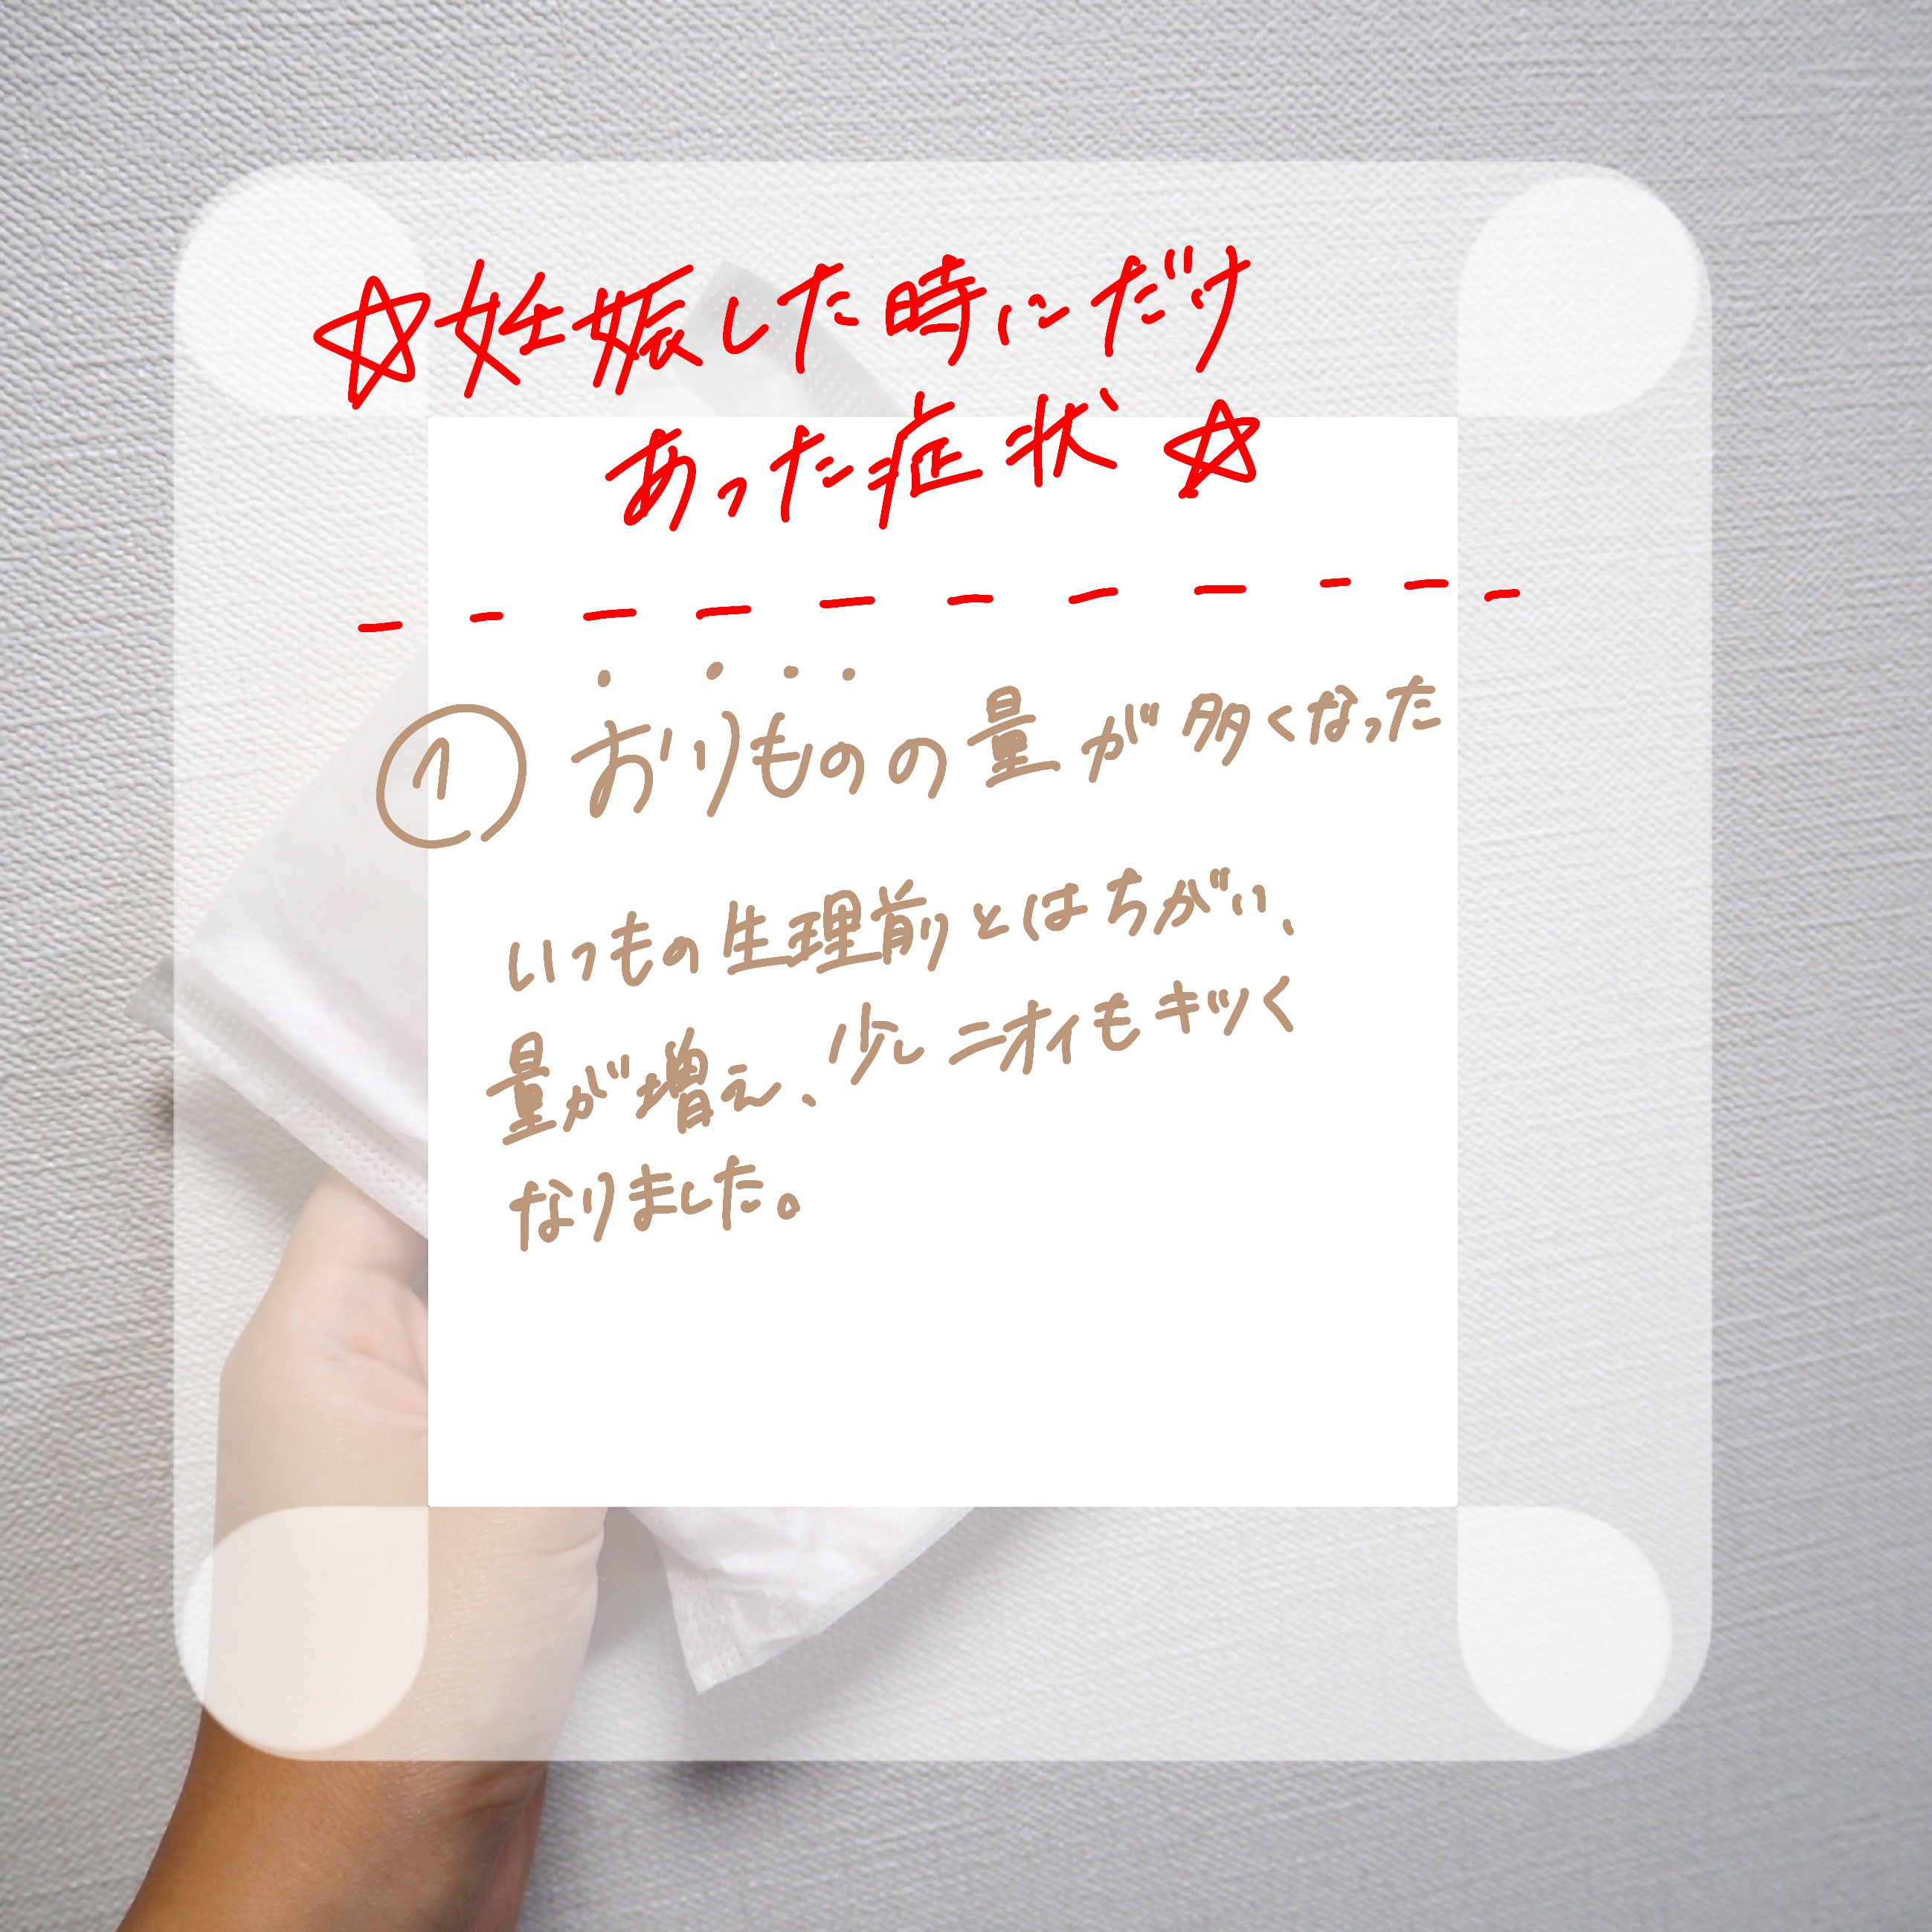 ☆妊娠した時にだけ
あった症状☆
① おりものの量が多くなった
いつもの生理前とはちがい、
量が増え、少しニオイもキツく
なりました。